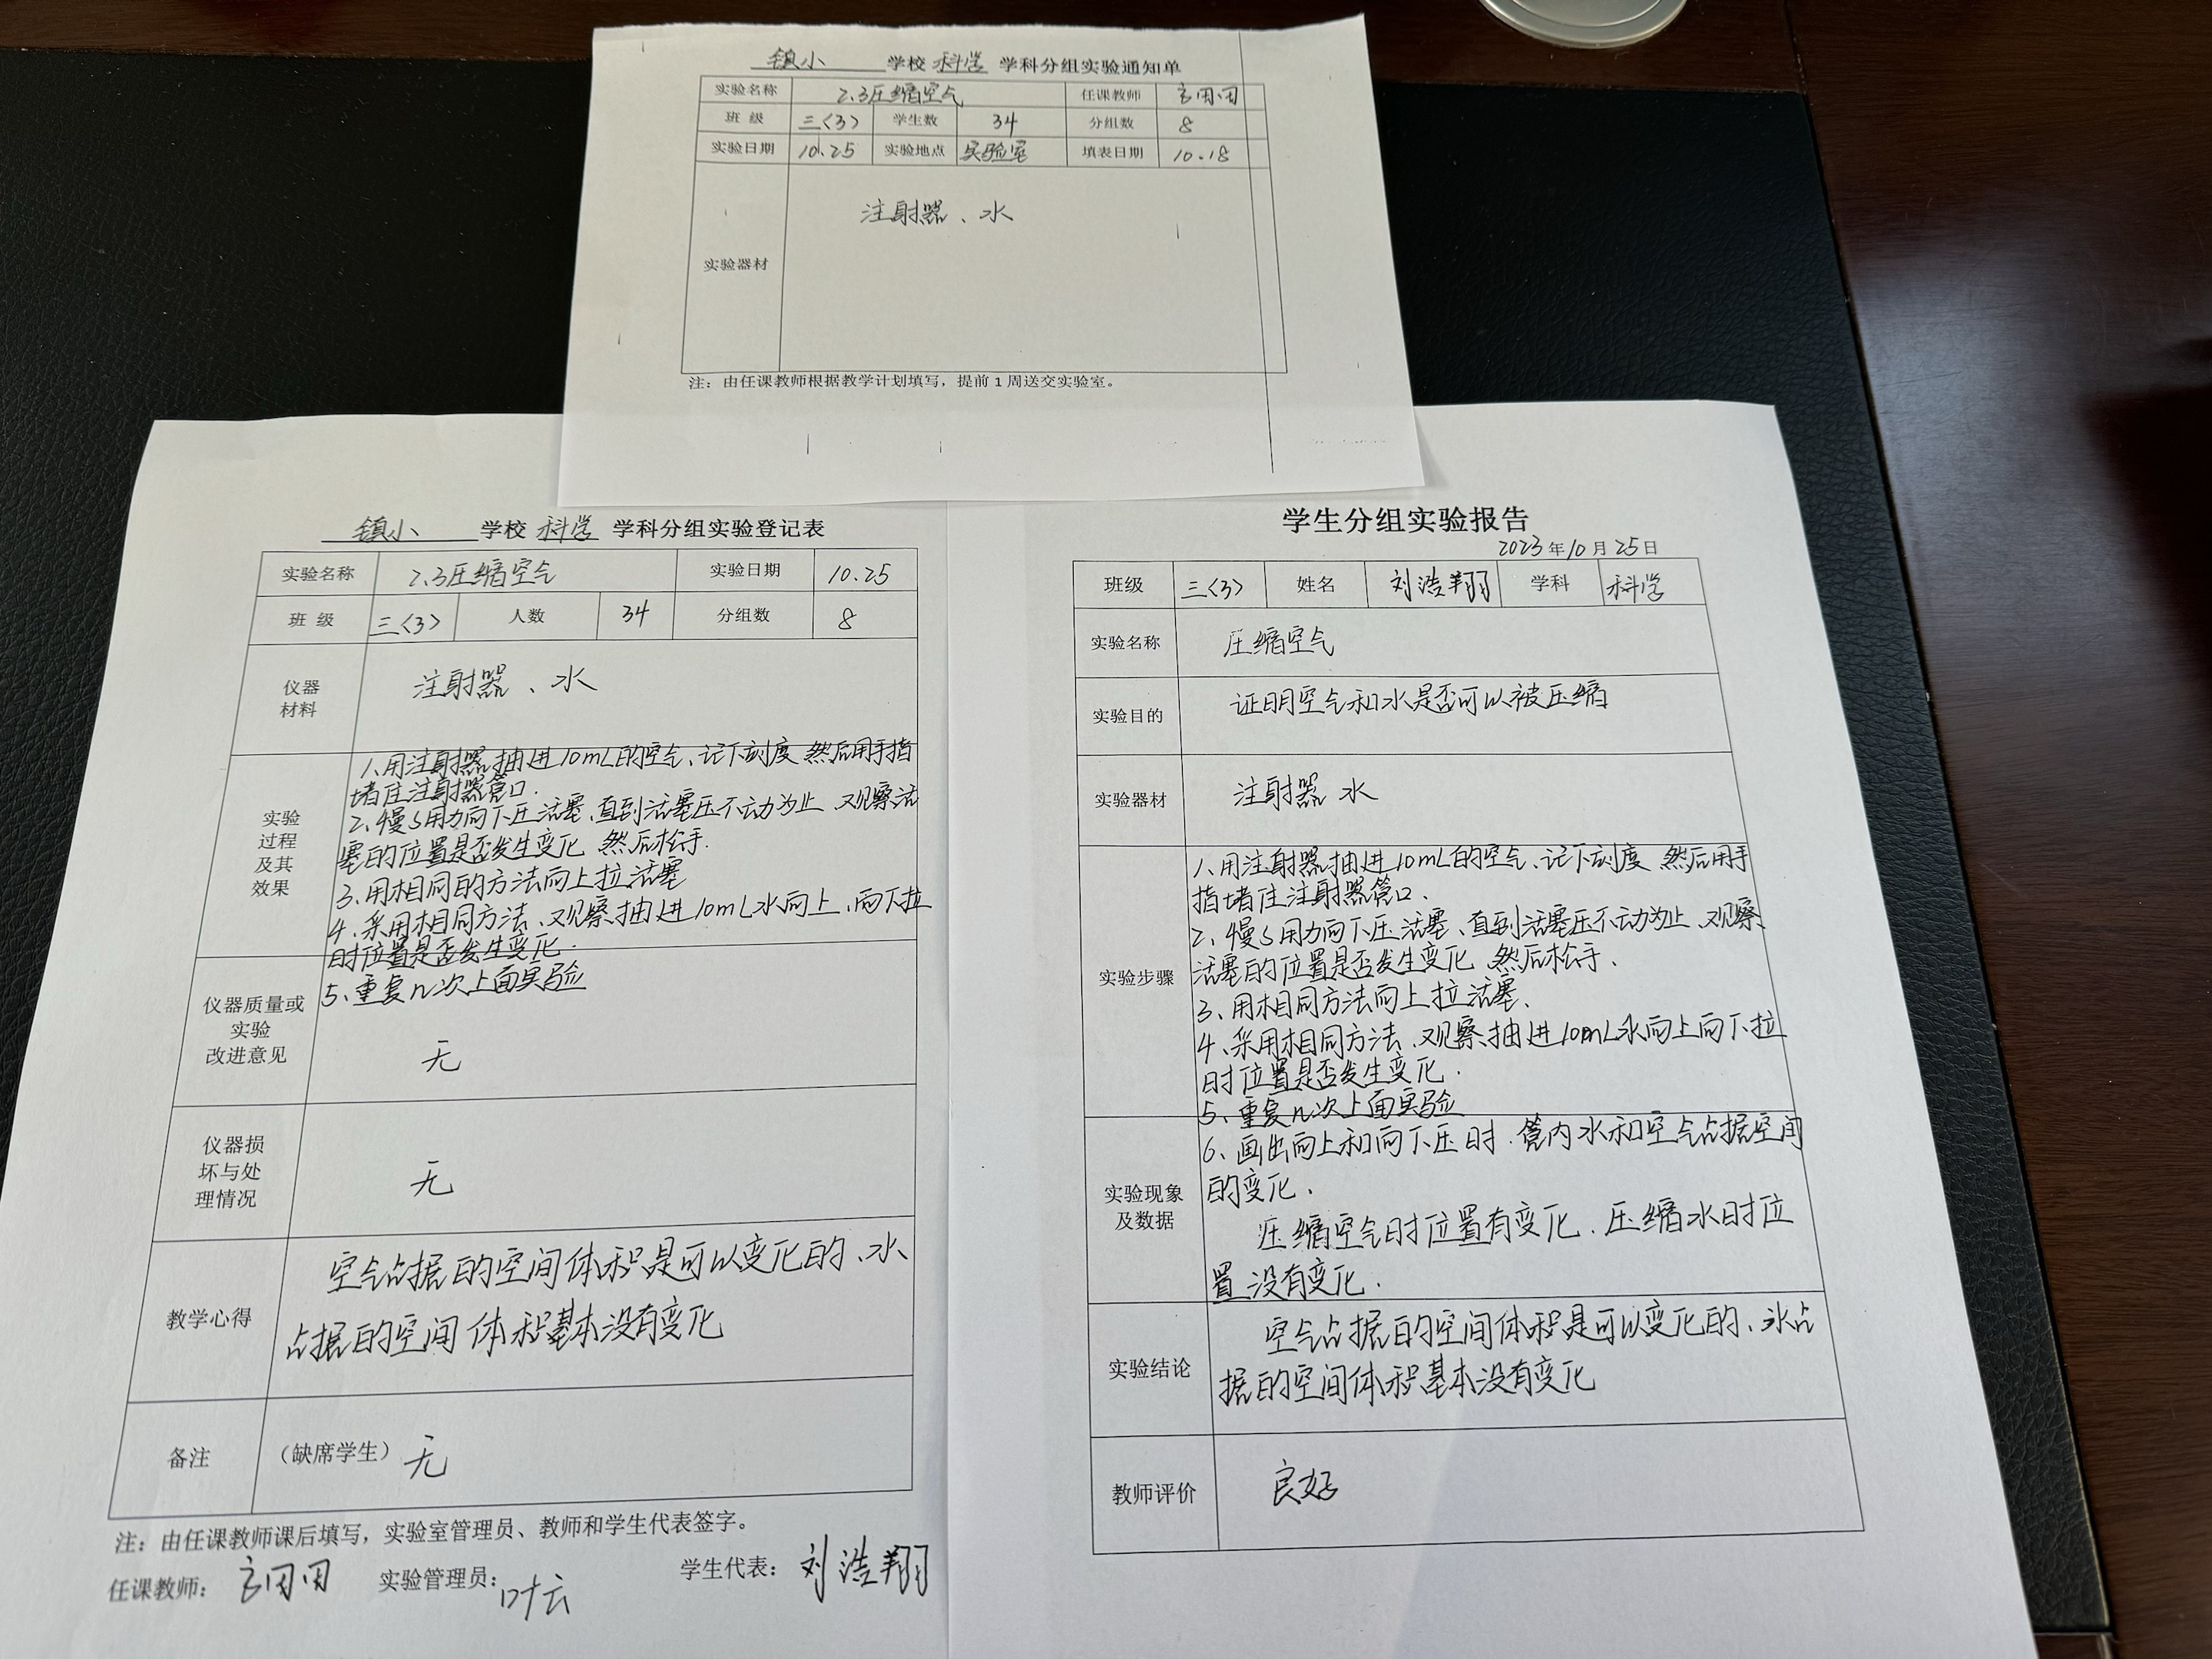 镇小 学校 科学 学科分组实验通知单
实验名称 2.3压缩空气 任课教师
班 级 三〈3〉 学生数 34 分组数 8
实验日期 10.25 实验地点 实验室 填表日期 10.18
实验器材 注射器、水
注：由任课教师根据教学计划填写，提前 1 周送交实验室。
镇小 学校 科学 学科分组实验登记表
实验名称 2.3压缩空气 实验日期 10.25
班 级 三〈3〉 人数 34 分组数 8
仪器
材料
注射器、水
实验
过程
及其
效果
1、用注射器抽进10mL的空气、记下刻度 然后用手指
堵住注射器管口.
2、慢慢用力向下压活塞、直到活塞压不动为止 观察活
塞的位置是否发生变化 然后松手.
3、用相同的方法向上拉活塞
4、采用相同方法、观察抽进10mL水向上、向下拉
时位置是否发生变化.
5、重复n次上面实验
仪器质量或
实验
改进意见
无
仪器损
坏与处
理情况
无
教学心得
空气占据的空间体积是可以变化的、水
占据的空间体积基本没有变化
备注 （缺席学生） 无
注：由任课教师课后填写，实验室管理员、教师和学生代表签字。
任课教师： 实验管理员： 叶云 学生代表： 刘浩翔
学生分组实验报告
2023年10月25日
班级 三〈3〉 姓名 刘浩翔 学科 科学
实验名称 压缩空气
实验目的 证明空气和水是否可以被压缩
实验器材 注射器 水
实验步骤
1、用注射器抽进10mL的空气、记下刻度 然后用手
指堵住注射器管口.
2、慢慢用力向下压活塞、直到活塞压不动为止、观察
活塞的位置是否发生变化 然后松手.
3、用相同方法向上拉活塞.
4、采用相同方法、观察抽进10mL水向上向下拉
时位置是否发生变化.
5、重复n次上面实验
实验现象
及数据
6、画出向上和向下压时.管内水和空气占据空间
的变化.
压缩空气时位置有变化.压缩水时位
置没有变化.
实验结论
空气占据的空间体积是可以变化的、水占
据的空间体积基本没有变化
教师评价 良好